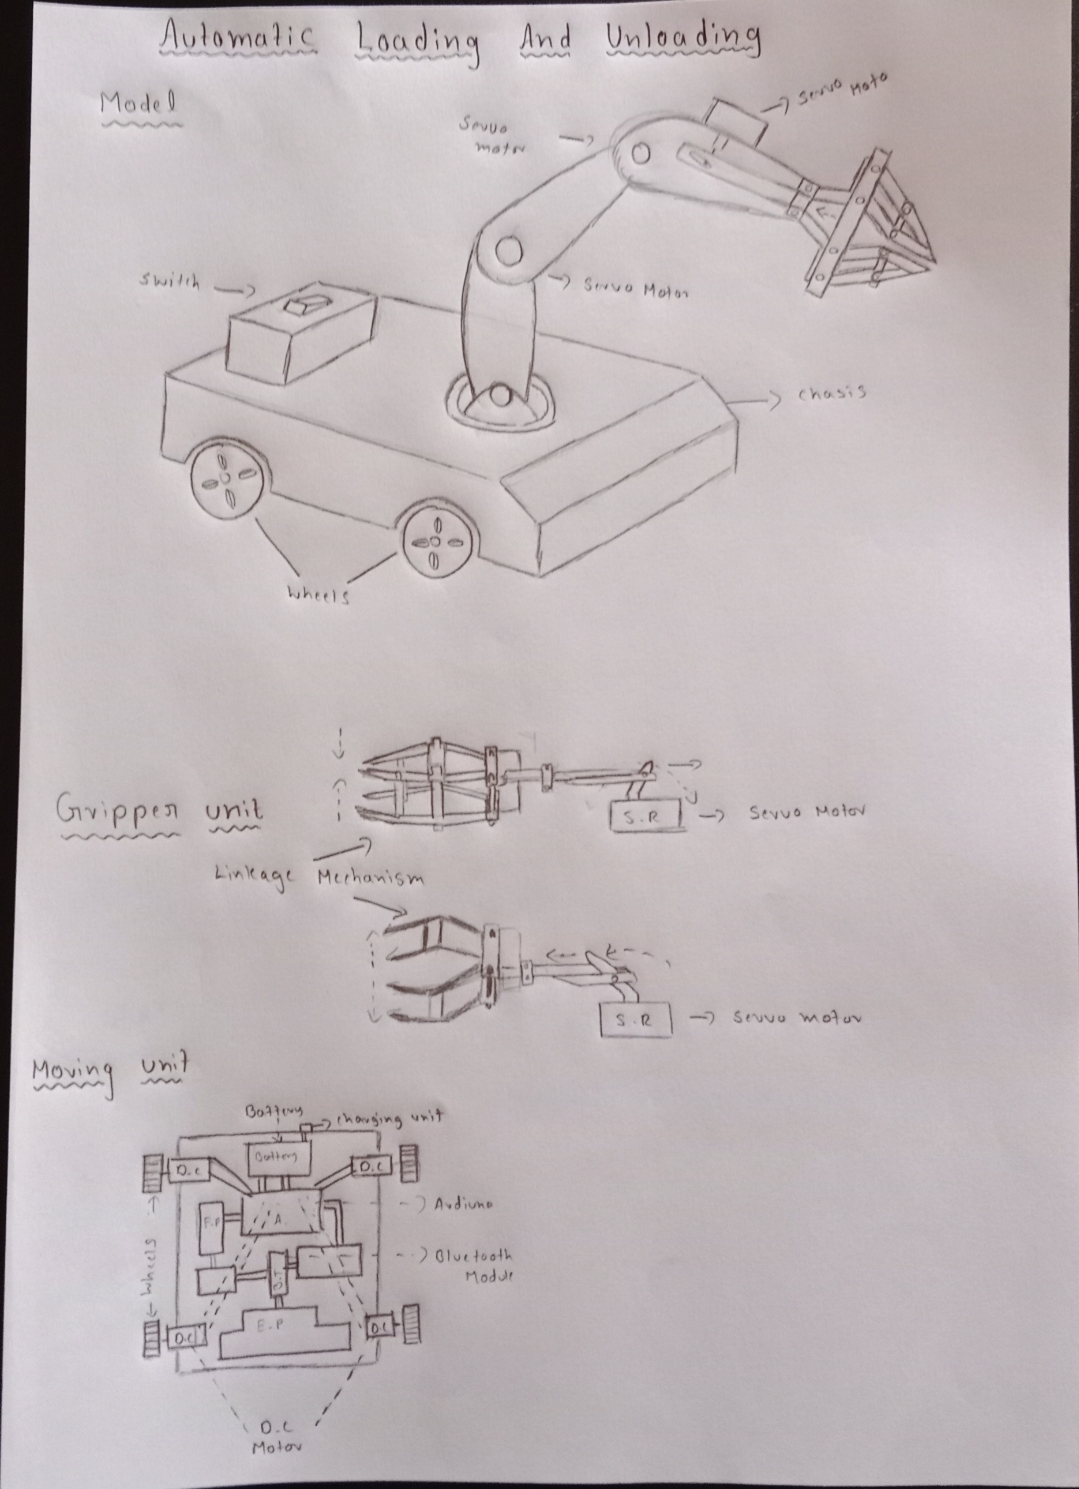 Automatic Loading And Unloading
Model
Servo Moto
Servo
motor
Switch
Servo Motor
chasis
wheels
Gripper unit
S.R
Servo Motor
Linkage Mechanism
S.R
Servo motor
Moving unit
Battery
charging unit
Battery
D.C
D.C
A.
Ardiuno
E.P
Wheels
Bluetooth
Module
B.T
E.P
D.C
D.C
D.C
Motor